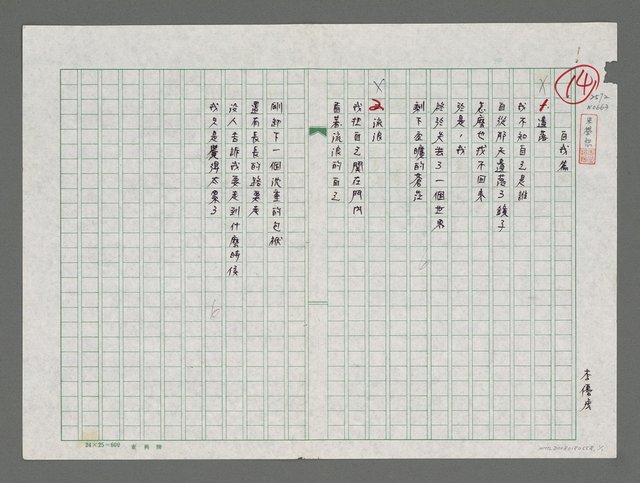 (14)
2592
K0663
李優虔
自我篇
1. 遺落
我不知自己是誰
自從那天遺落了鏡子
怎麼也找不回來
於是，我
終於失去了一個世界
剩下空曠的蒼茫
2 流浪
我把自己關在門內
看著流浪的自己
剛卸下一個沈重的包袱
還有長長的路要走
沒人告訴我要走到什麼時候
我只是覺得太累了
24×25=600